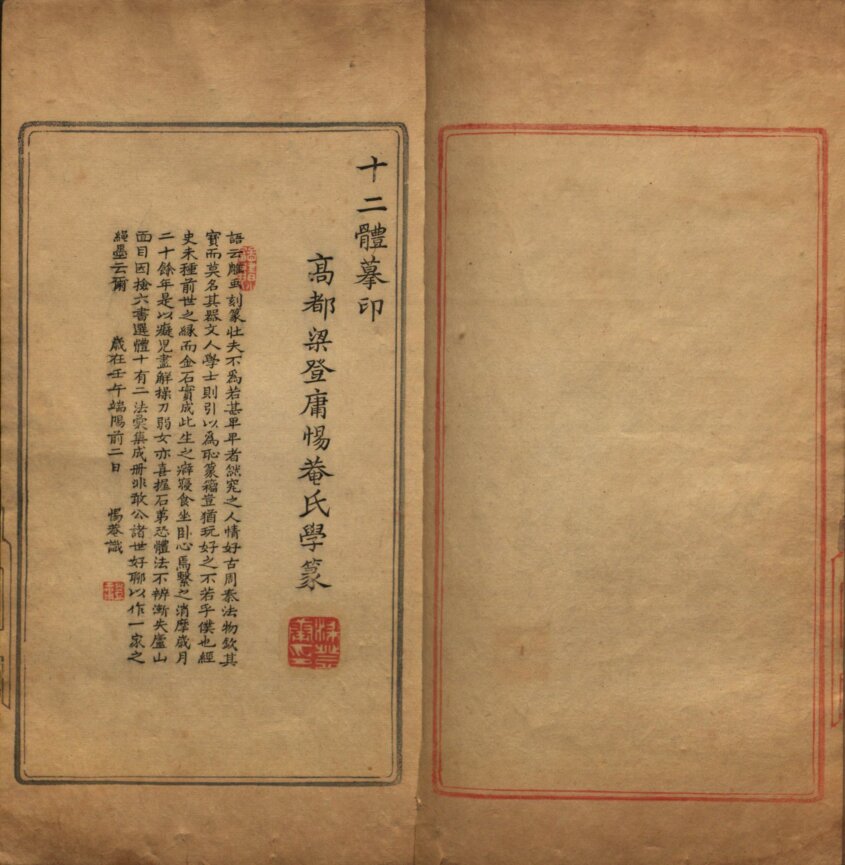 十二體摹印
高都梁登庸惕菴氏學篆
語云雕蟲刻篆壯夫不為若甚卑卑者然究之人情好古周秦法物欽其
寶而莫名其器文人學士則引以為恥篆籀豈猶玩好之不若乎僕也經
史未種前世之緣而金石實成此生之癖寢食坐臥心焉繫之消摩歲月
二十餘年是以癡兒盡解操刀弱女亦喜握石弟恐體法不辨漸失廬山
面目因撿六書選體十有二法彙集成冊非敢公諸世好聊以作一家之
繩墨云爾 歲在壬午端陽前二日 惕菴識